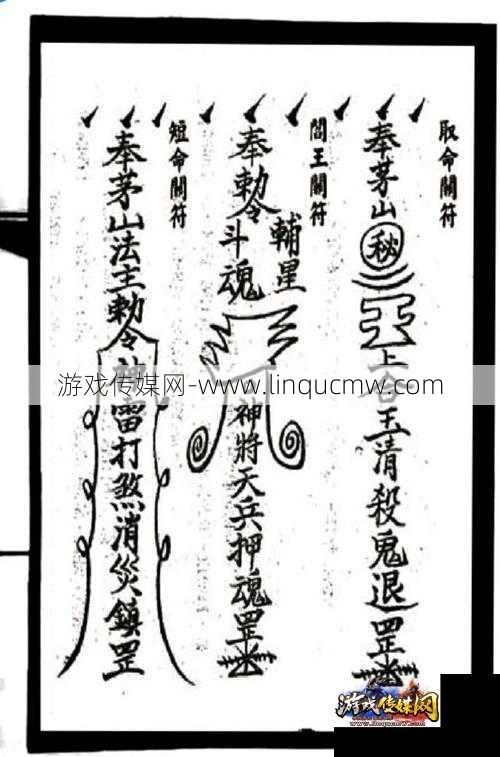 取命關符
奉茅山秘
上合玉清殺鬼退罡
閻王關符
奉勅令
輔星
斗魂
神將天兵押魂罡
短命關符
奉茅山法主勅令神雷打煞消災鎮罡
游戏传媒网-www.linqucmw.com
游戏传媒网
www.linqucmw.com